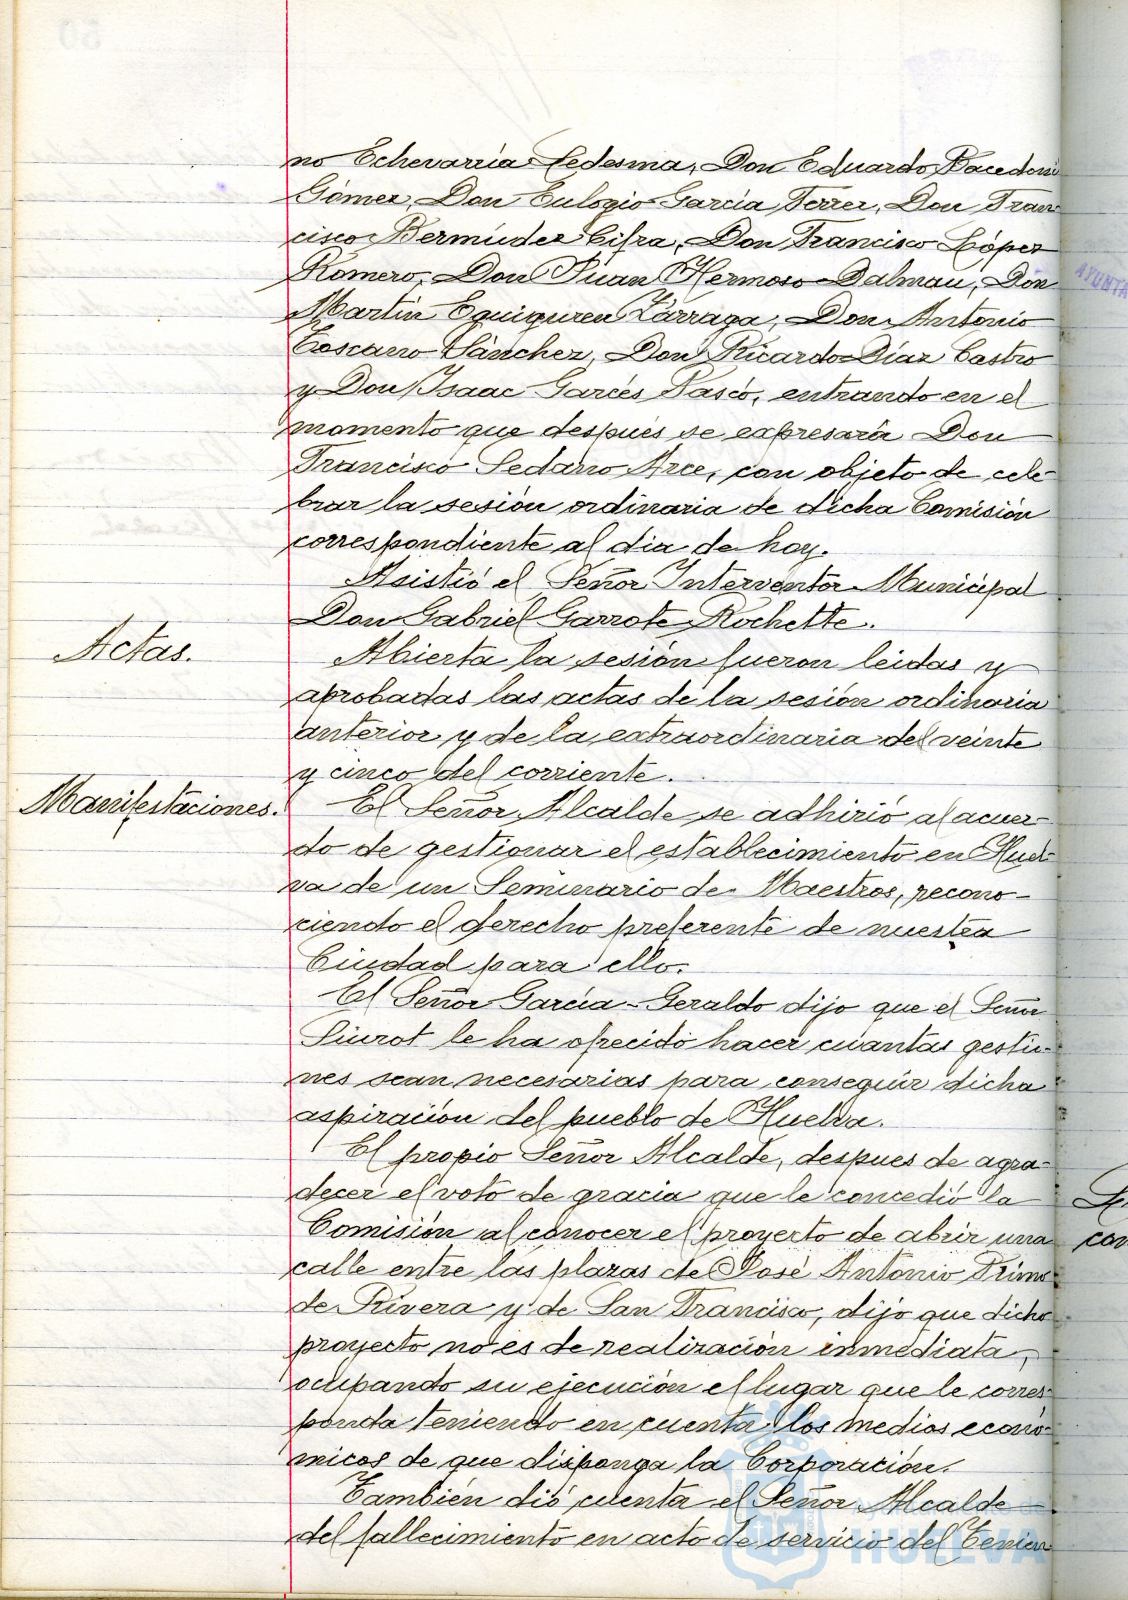 no Echevarría Ledesma, Don Eduardo Bacedoni
Gómez, Don Eulogio García Ferrer, Don Fran-
cisco Bermúdez Cifra, Don Francisco López
Romero, Don Juan Hermoso Dalmau, Don
Martín Eguiguren Zárraga, Don Antonio
Toscano Sánchez, Don Ricardo Díaz Castro
y Don Isaac Garcés Pascó, entrando en el
momento que después se expresará Don
Francisco Sedano Arce, con objeto de cele-
brar la sesión ordinaria de dicha Comisión
correspondiente al día de hoy.
Asistió el Señor Interventor Municipal
Don Gabriel Garrote Rochette.
Actas.
Abierta la sesión fueron leídas y
aprobadas las actas de la sesión ordinaria
anterior y de la extraordinaria del veinte
y cinco del corriente.
Manifestaciones.
El Señor Alcalde se adhirió al acuer-
do de gestionar el establecimiento en Huel-
va de un Seminario de Maestros, recono-
ciendo el derecho preferente de nuestra
Ciudad para ello.
El Señor García-Geraldo dijo que el Señor
Siurot le ha ofrecido hacer cuantas gestio-
nes sean necesarias para conseguir dicha
aspiración del pueblo de Huelva.
El propio Señor Alcalde, después de agra-
decer el voto de gracia que le concedió la
Comisión al conocer el proyecto de abrir una
calle entre las plazas de José Antonio Primo
de Rivera y de San Francisco, dijo que dicho
proyecto no es de realización inmediata,
ocupando su ejecución el lugar que le corres-
ponda teniendo en cuenta los medios econó-
micos de que disponga la Corporación.
También dió cuenta el Señor Alcalde
del fallecimiento en acto de servicio del Tenien
AYUNTA
con
Ayuntamiento de
HUELVA